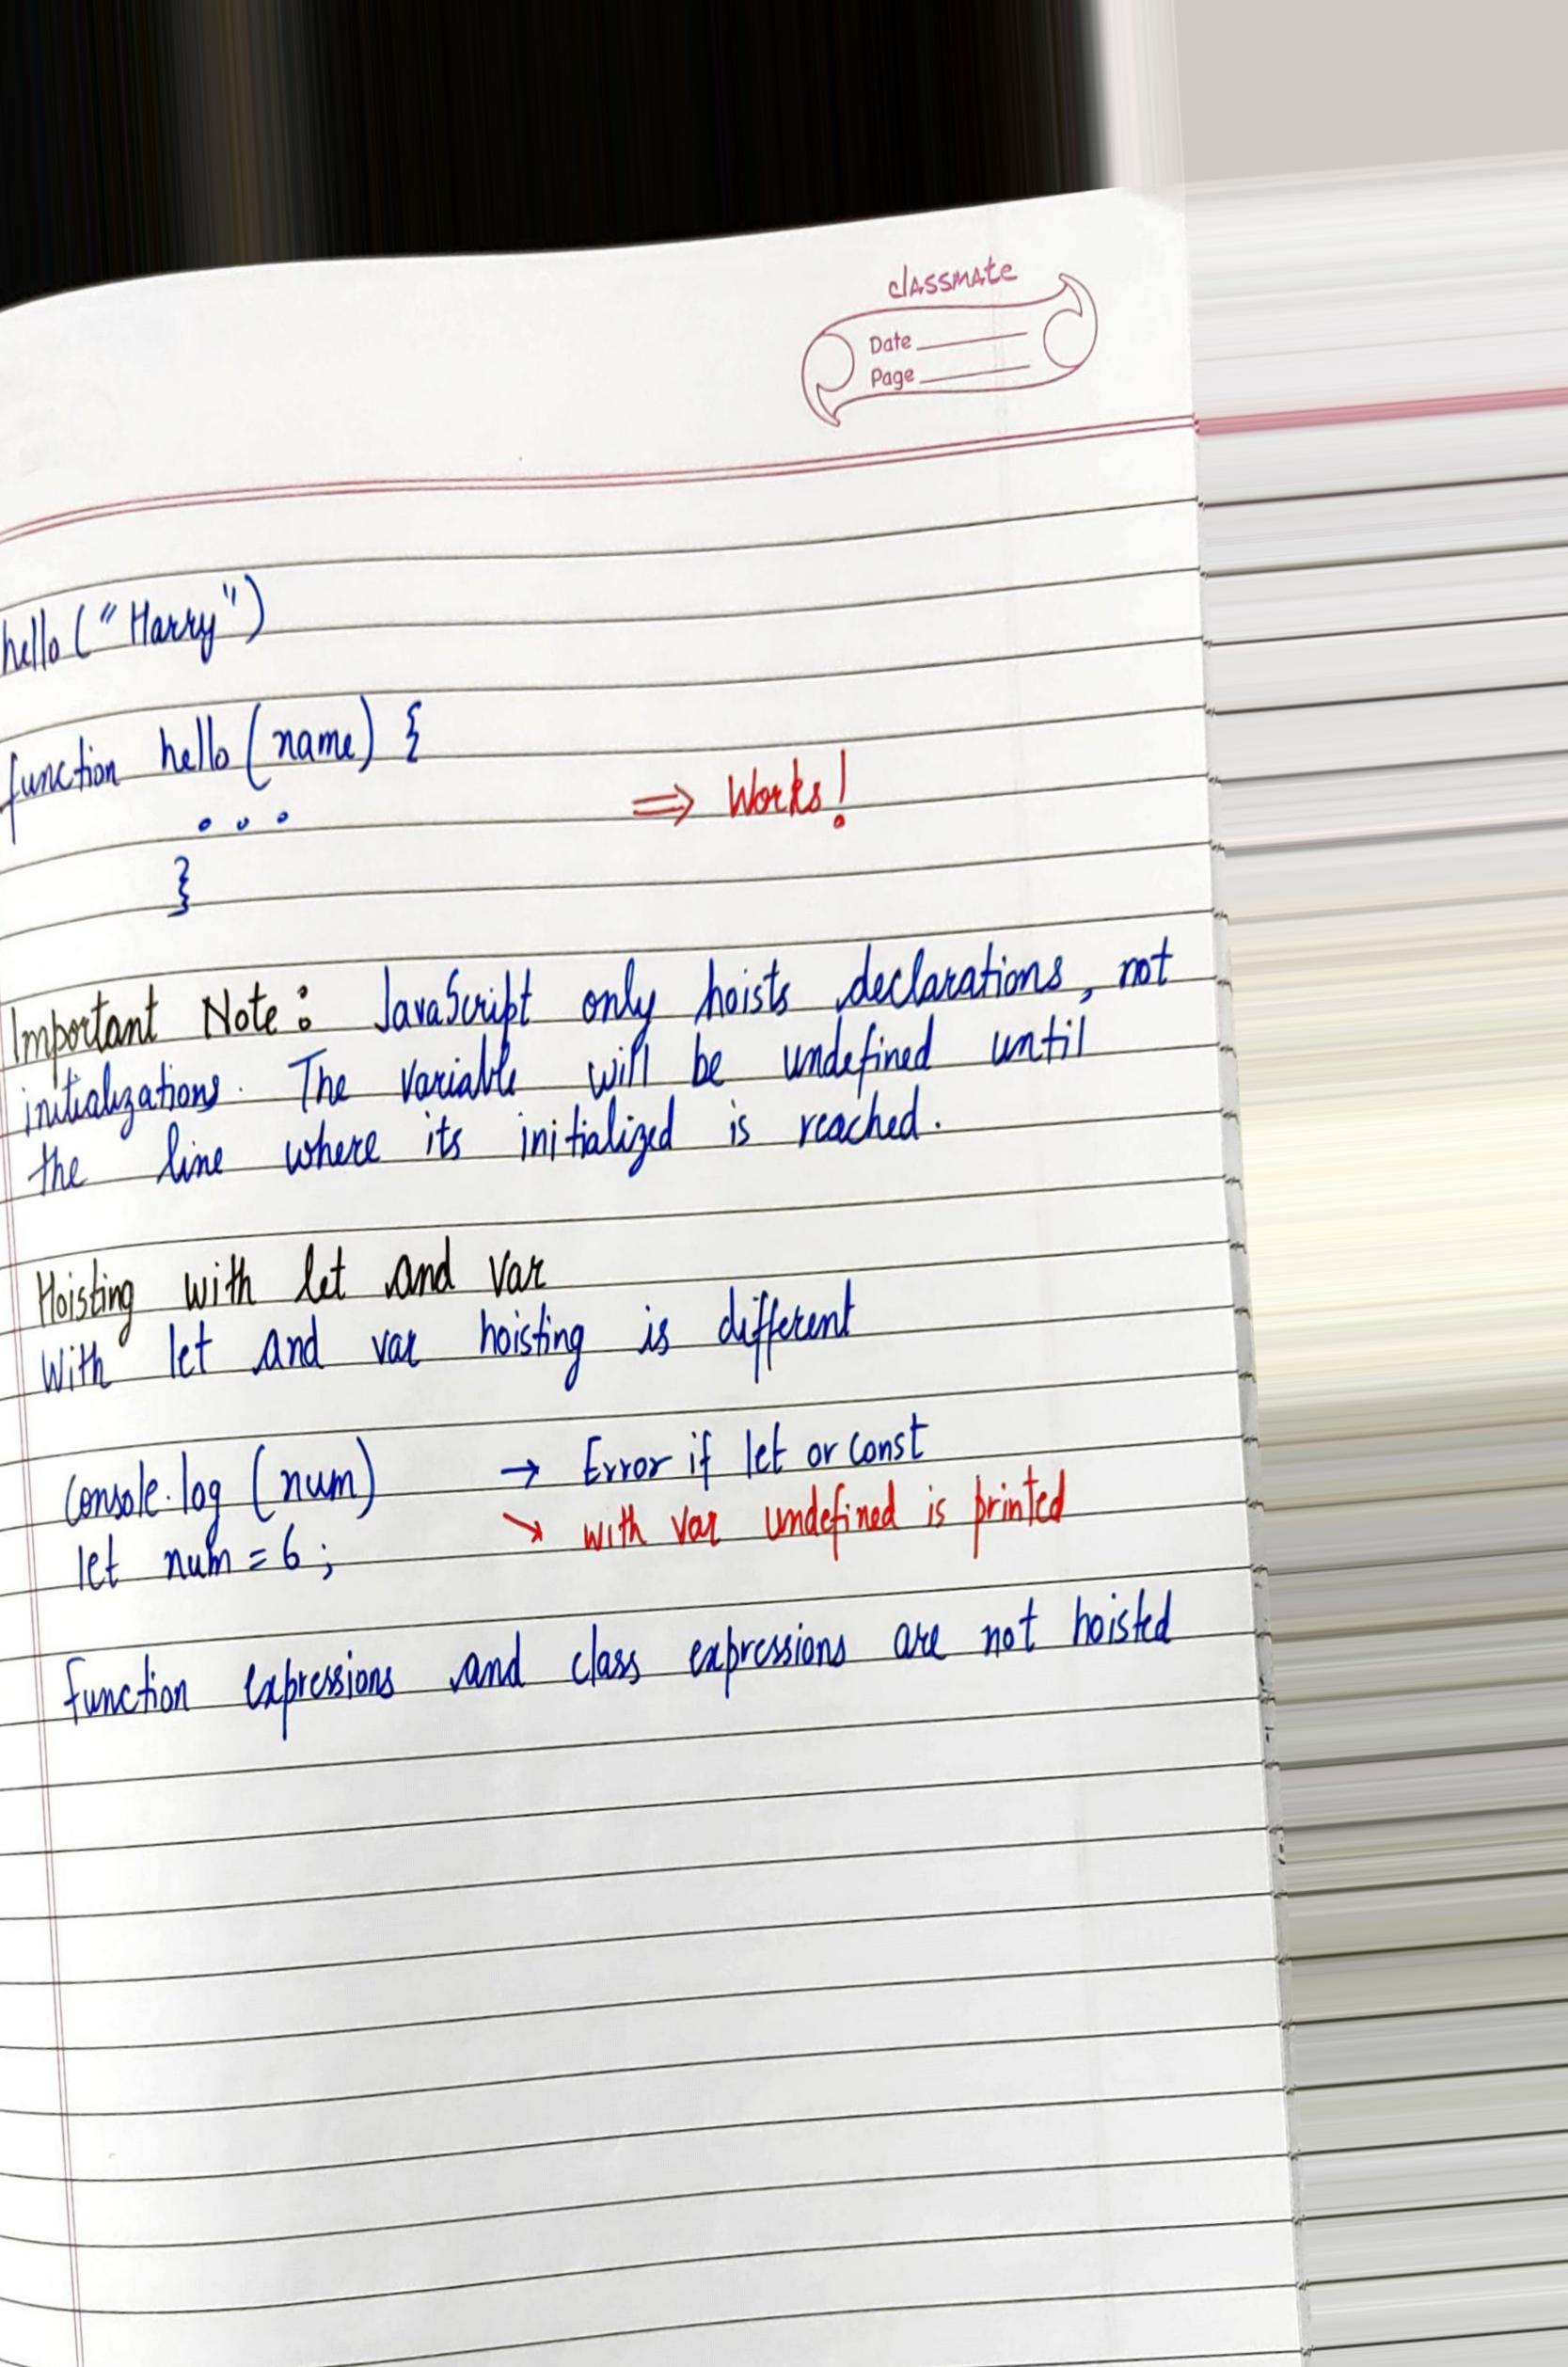 classmate
Date
Page
hello ("Harry")
function hello (name) {
...
}
⇒ Works!
Important Note: JavaScript only hoists declarations, not
initializations. The variable will be undefined until
the line where its initialized is reached.
Hoisting with let and var
With let and var hoisting is different
Console.log (num) → Error if let or const
↘ with var undefined is printed
let num = 6;
function expressions and class expressions are not hoisted